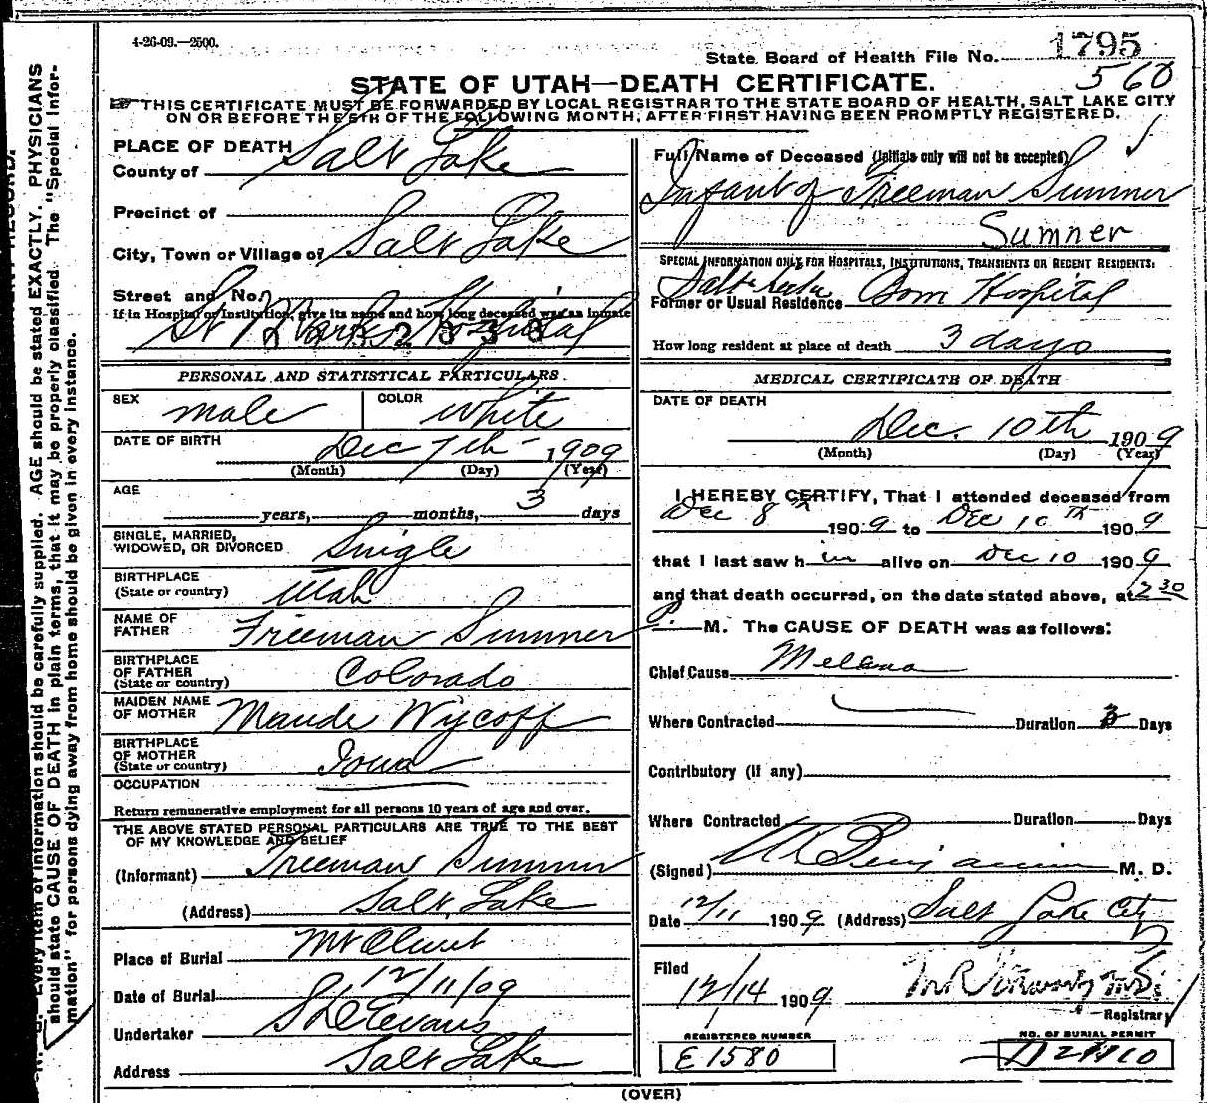 4-26-09.—2500.
State Board of Health File No. 1795
560
STATE OF UTAH—DEATH CERTIFICATE.
THIS CERTIFICATE MUST BE FORWARDED BY LOCAL REGISTRAR TO THE STATE BOARD OF HEALTH, SALT LAKE CITY
ON OR BEFORE THE 5TH OF THE FOLLOWING MONTH, AFTER FIRST HAVING BEEN PROMPTLY REGISTERED.
PLACE OF DEATH
County of Salt Lake
Precinct of
City, Town or Village of Salt Lake
Street and No.
If in Hospital or Institution, give its name and how long deceased was an inmate
St Marks Hospital
PERSONAL AND STATISTICAL PARTICULARS.
SEX male COLOR White
DATE OF BIRTH Dec 7th 1909
(Month) (Day) (Year)
AGE years, months, 3 days
SINGLE, MARRIED,
WIDOWED, OR DIVORCED Single
BIRTHPLACE
(State or country) Utah
NAME OF
FATHER Freeman Sumner
BIRTHPLACE
OF FATHER
(State or country) Colorado
MAIDEN NAME
OF MOTHER Maude Wycoff
BIRTHPLACE
OF MOTHER
(State or country) Iowa
OCCUPATION
Return remunerative employment for all persons 10 years of age and over.
THE ABOVE STATED PERSONAL PARTICULARS ARE TRUE TO THE BEST
OF MY KNOWLEDGE AND BELIEF
(Informant) Freeman Sumner
(Address) Salt Lake
Place of Burial Mt Olivet
Date of Burial 12/11/09
Undertaker S D Evans
Address Salt Lake
Full Name of Deceased (Initials only will not be accepted)
Infant of Freeman Sumner
Sumner
SPECIAL INFORMATION ONLY FOR HOSPITALS, INSTITUTIONS, TRANSIENTS OR RECENT RESIDENTS:
Former or Usual Residence Salt Lake Born Hospital
How long resident at place of death 3 days
MEDICAL CERTIFICATE OF DEATH
DATE OF DEATH
Dec. 10th 1909
(Month) (Day) (Year)
I HEREBY CERTIFY, That I attended deceased from
Dec 8th 1909 to Dec 10th 1909
that I last saw h im alive on Dec 10 1909
and that death occurred, on the date stated above, at 2 30
P. M. The CAUSE OF DEATH was as follows:
Chief Cause Melena
Where Contracted Duration 3 Days
Contributory (if any)
Where Contracted Duration Days
(Signed) Benjamin M. D.
Date 12/11 1909 (Address) Salt Lake City
Filed
12/14 1909
Registrar
REGISTERED NUMBER
E 1580
NO. OF BURIAL PERMIT
(OVER)
Every item of information should be carefully supplied. AGE should be stated EXACTLY. PHYSICIANS
should state CAUSE OF DEATH in plain terms, that it may be properly classified. The "Special Infor-
mation" for persons dying away from home should be given in every instance.